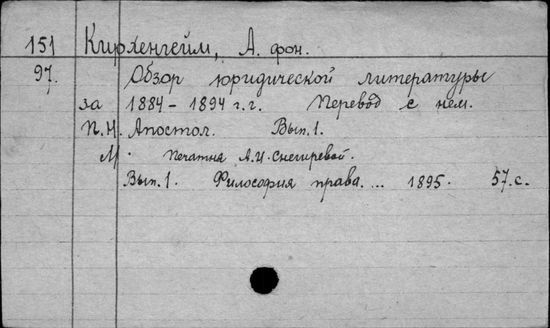 151 Кирхенгейм, А. фон.
97. Обзор юридической литературы
за 1884-1894 г.г. Перевод с нем.
П.Н. Апостол. Вып.1.
М. Печатня А.И. Снегиревой.
Вып.1. Философия права.... 1895. 57.с.